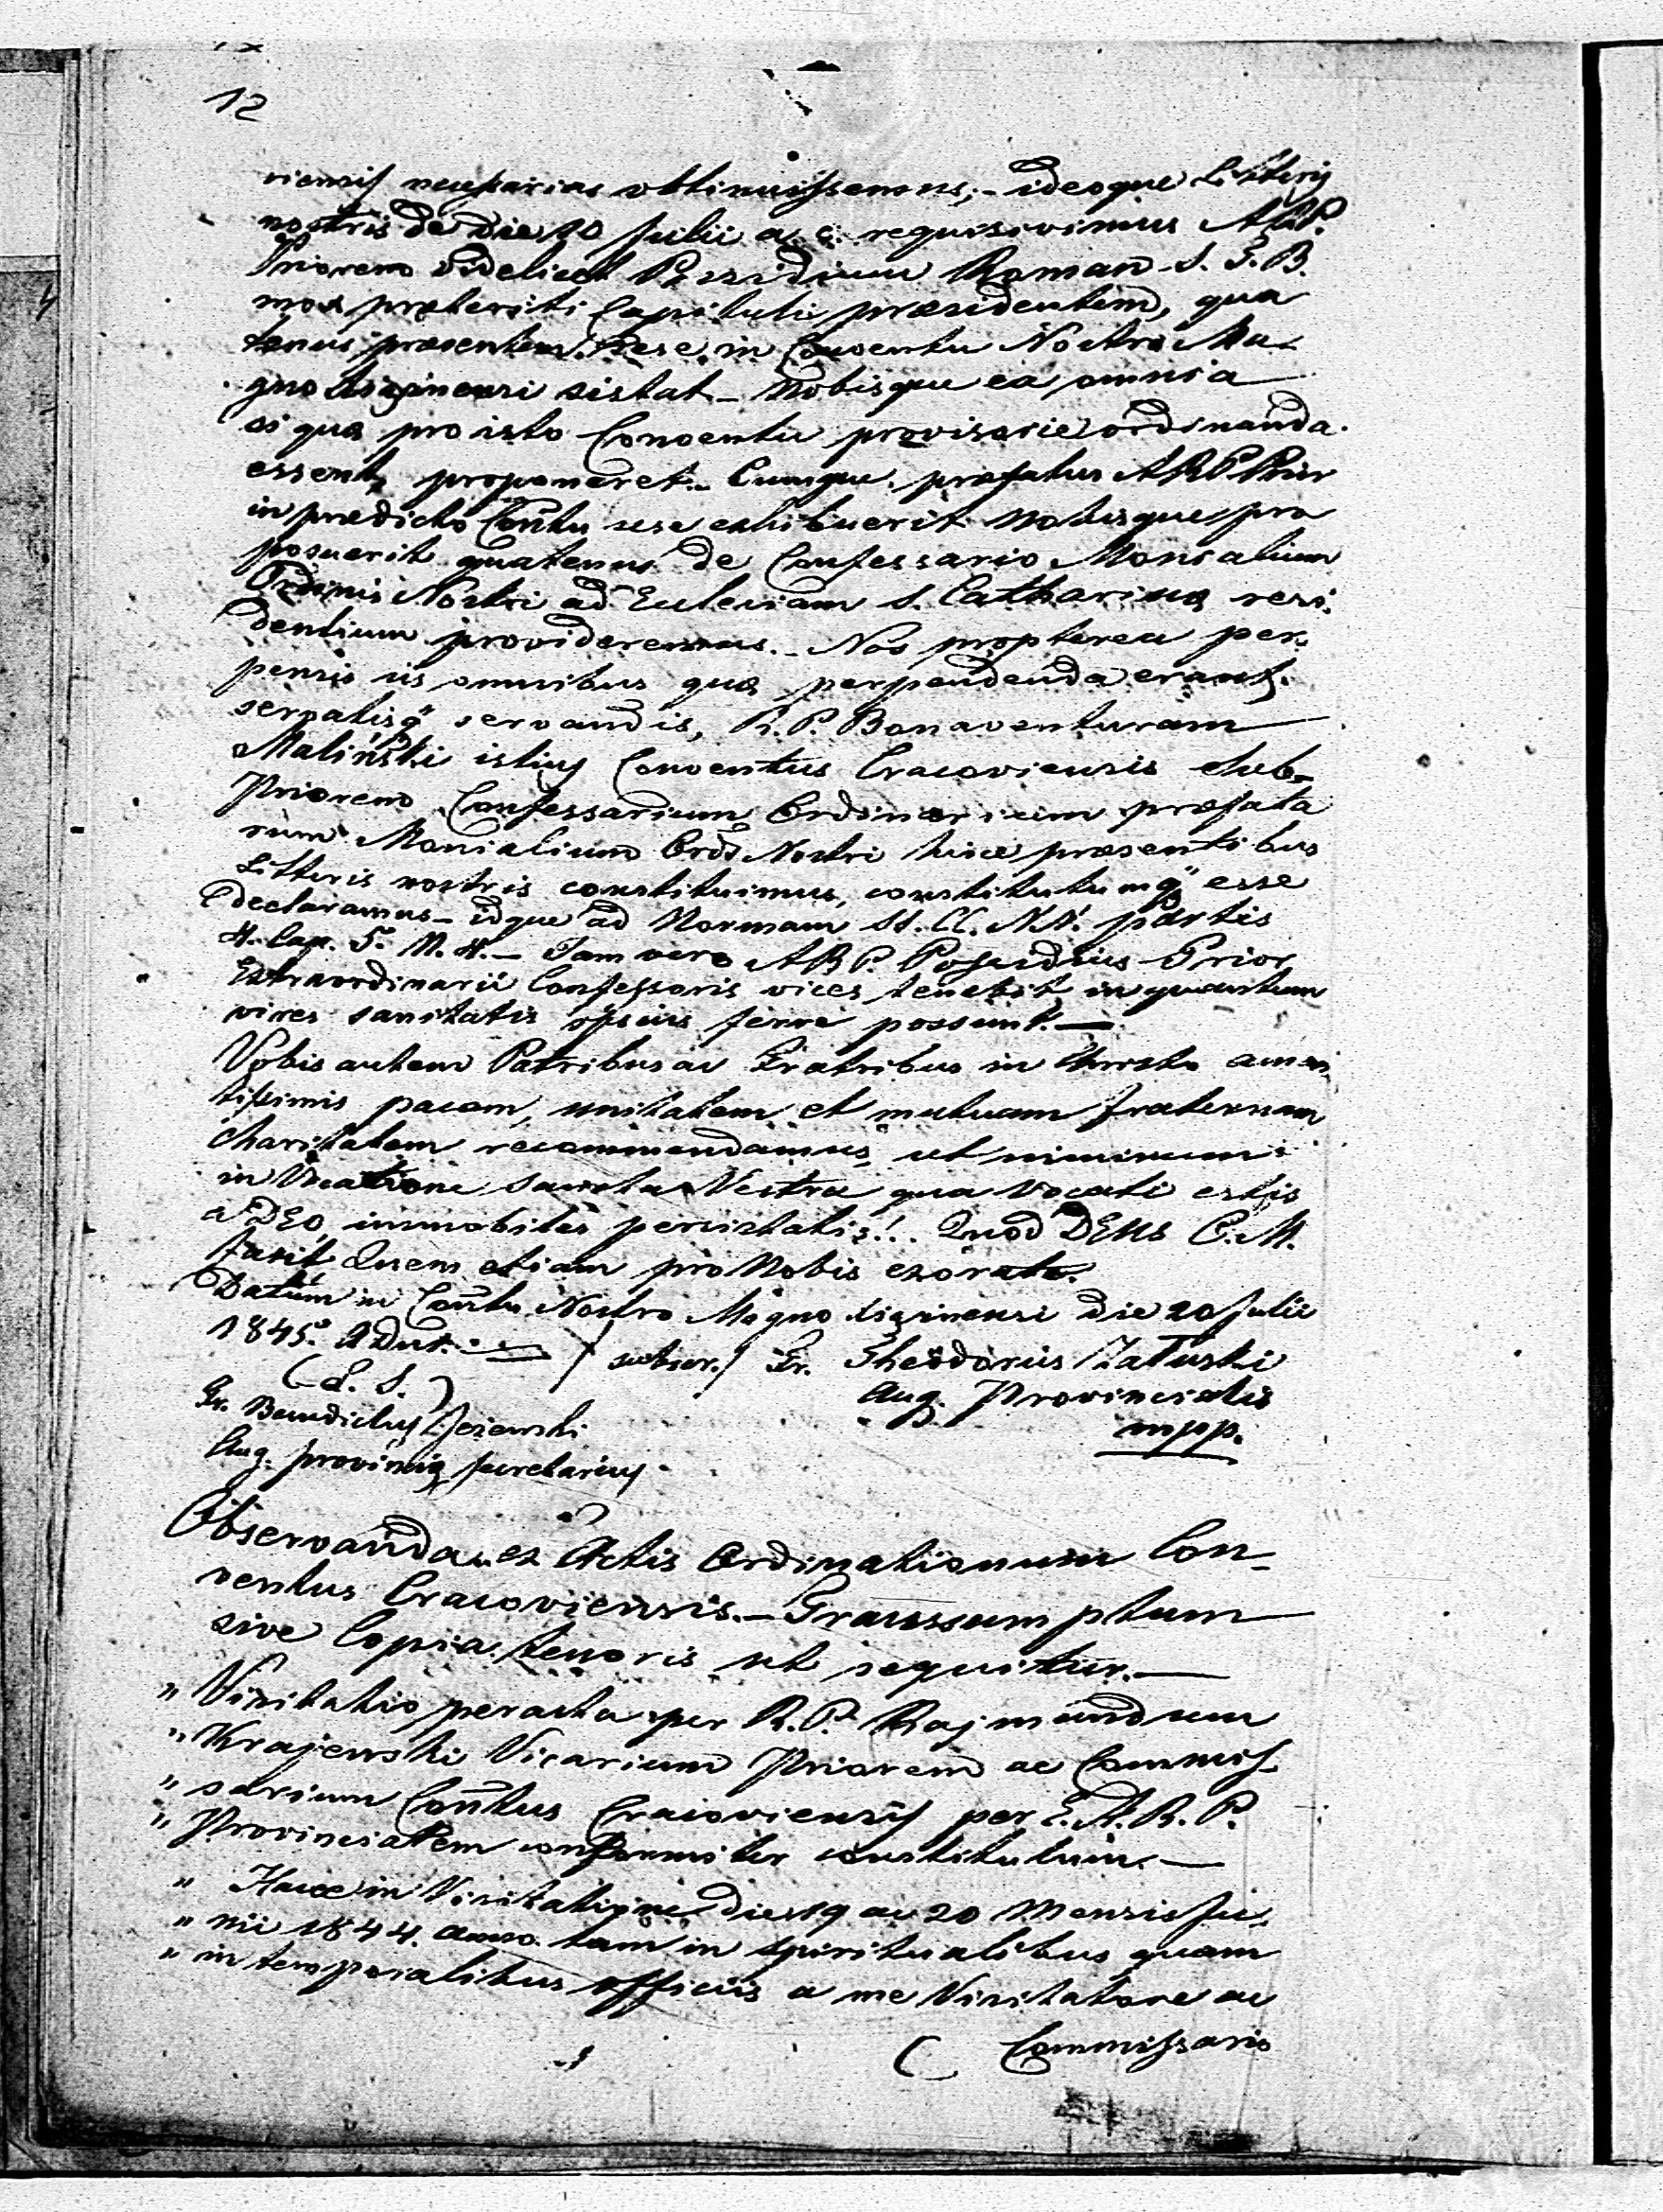 12
viensis necessarias obtinuissemus; - ideoque Litteris
nostris de die 10 Julii a. c. requisivimus A.R.P.
Priorem videlicet Possidium Roman S. T. B.
mox præteriti Capituli præsidentem, qua
tenus præsentem sese in Conventu Nostro Ma-
gno Lisinensi sistat - Nobisque ea omnia
si quæ pro isto Conventu provisorie ordinanda
essent, proponeret. - Cumque præfatus A R P Prior
in prædicto Con̄tu sese exhibuerit nobisque pro
posuerit quatenus de Confessario Monialium
Ordinis Nostri ad Ecclesiam S. Catharinæ resi-
dentium provideremus. - Nos propterea per-
pensis iis omnibus quæ perpendenda erant,
servatisq" servandis, R. P. Bonaventuram
Maliński istius Conventus Cracoviensis Sub-
Priorem Confessarium Ordinarium præfata
rum Monialium Ord̄s Nostri hisce præsentibus
Litteris nostris constituimus, constitutumq" esse
declaramus - idque ad Normam SS. CC. N.N. partis
4. Cap. 5. N. 4. - Jam vero A R P. Possidius Prior
Extraordinarii Confessoris vices tenebit, in quantum
vires sanitatis ipsius ferre possunt. -
Vobis autem Patribus ac Fratribus in Christo aman
tissimis pacem, unitatem et mutuam fraternam
charitatem recommendamus, ut nimirum
in Vocatione Sancta Vestra qua vocati estis
a DEO immobiles persistatis!.. Quod DEUS O. M.
faxit Quem etiam pro Nobis exorate.
Datum in Con̄tu Nostro Magno Lisinensi die 20 Julii
1845. A Dni. / subscr. / Fr. Theodorus Załuski
(L. S.) Aug. Provincialis
Fr. Benedictus Jezewski mpp.
Aug. provinciæ secretarius
Observanda ex Actis Ordinationum Con-
ventus Cracoviensis. - Transsumptum
sive Copia tenoris ut sequitur. -
" Visitatio peracta per R. P. Rajmundum
" Krajewski Vicarium Priorem ac Commis-
" sarium Con̄tus Cracoviensis per E. A. R. P.
" Provincialem conformiter constitutum. -
" Hacce in Visitatione dies 19 ac 20 Mensis Ju-
" nii 1844. anno. tam in spiritualibus quam
" in temporalibus officiis a me Visitatore ac
Commissario